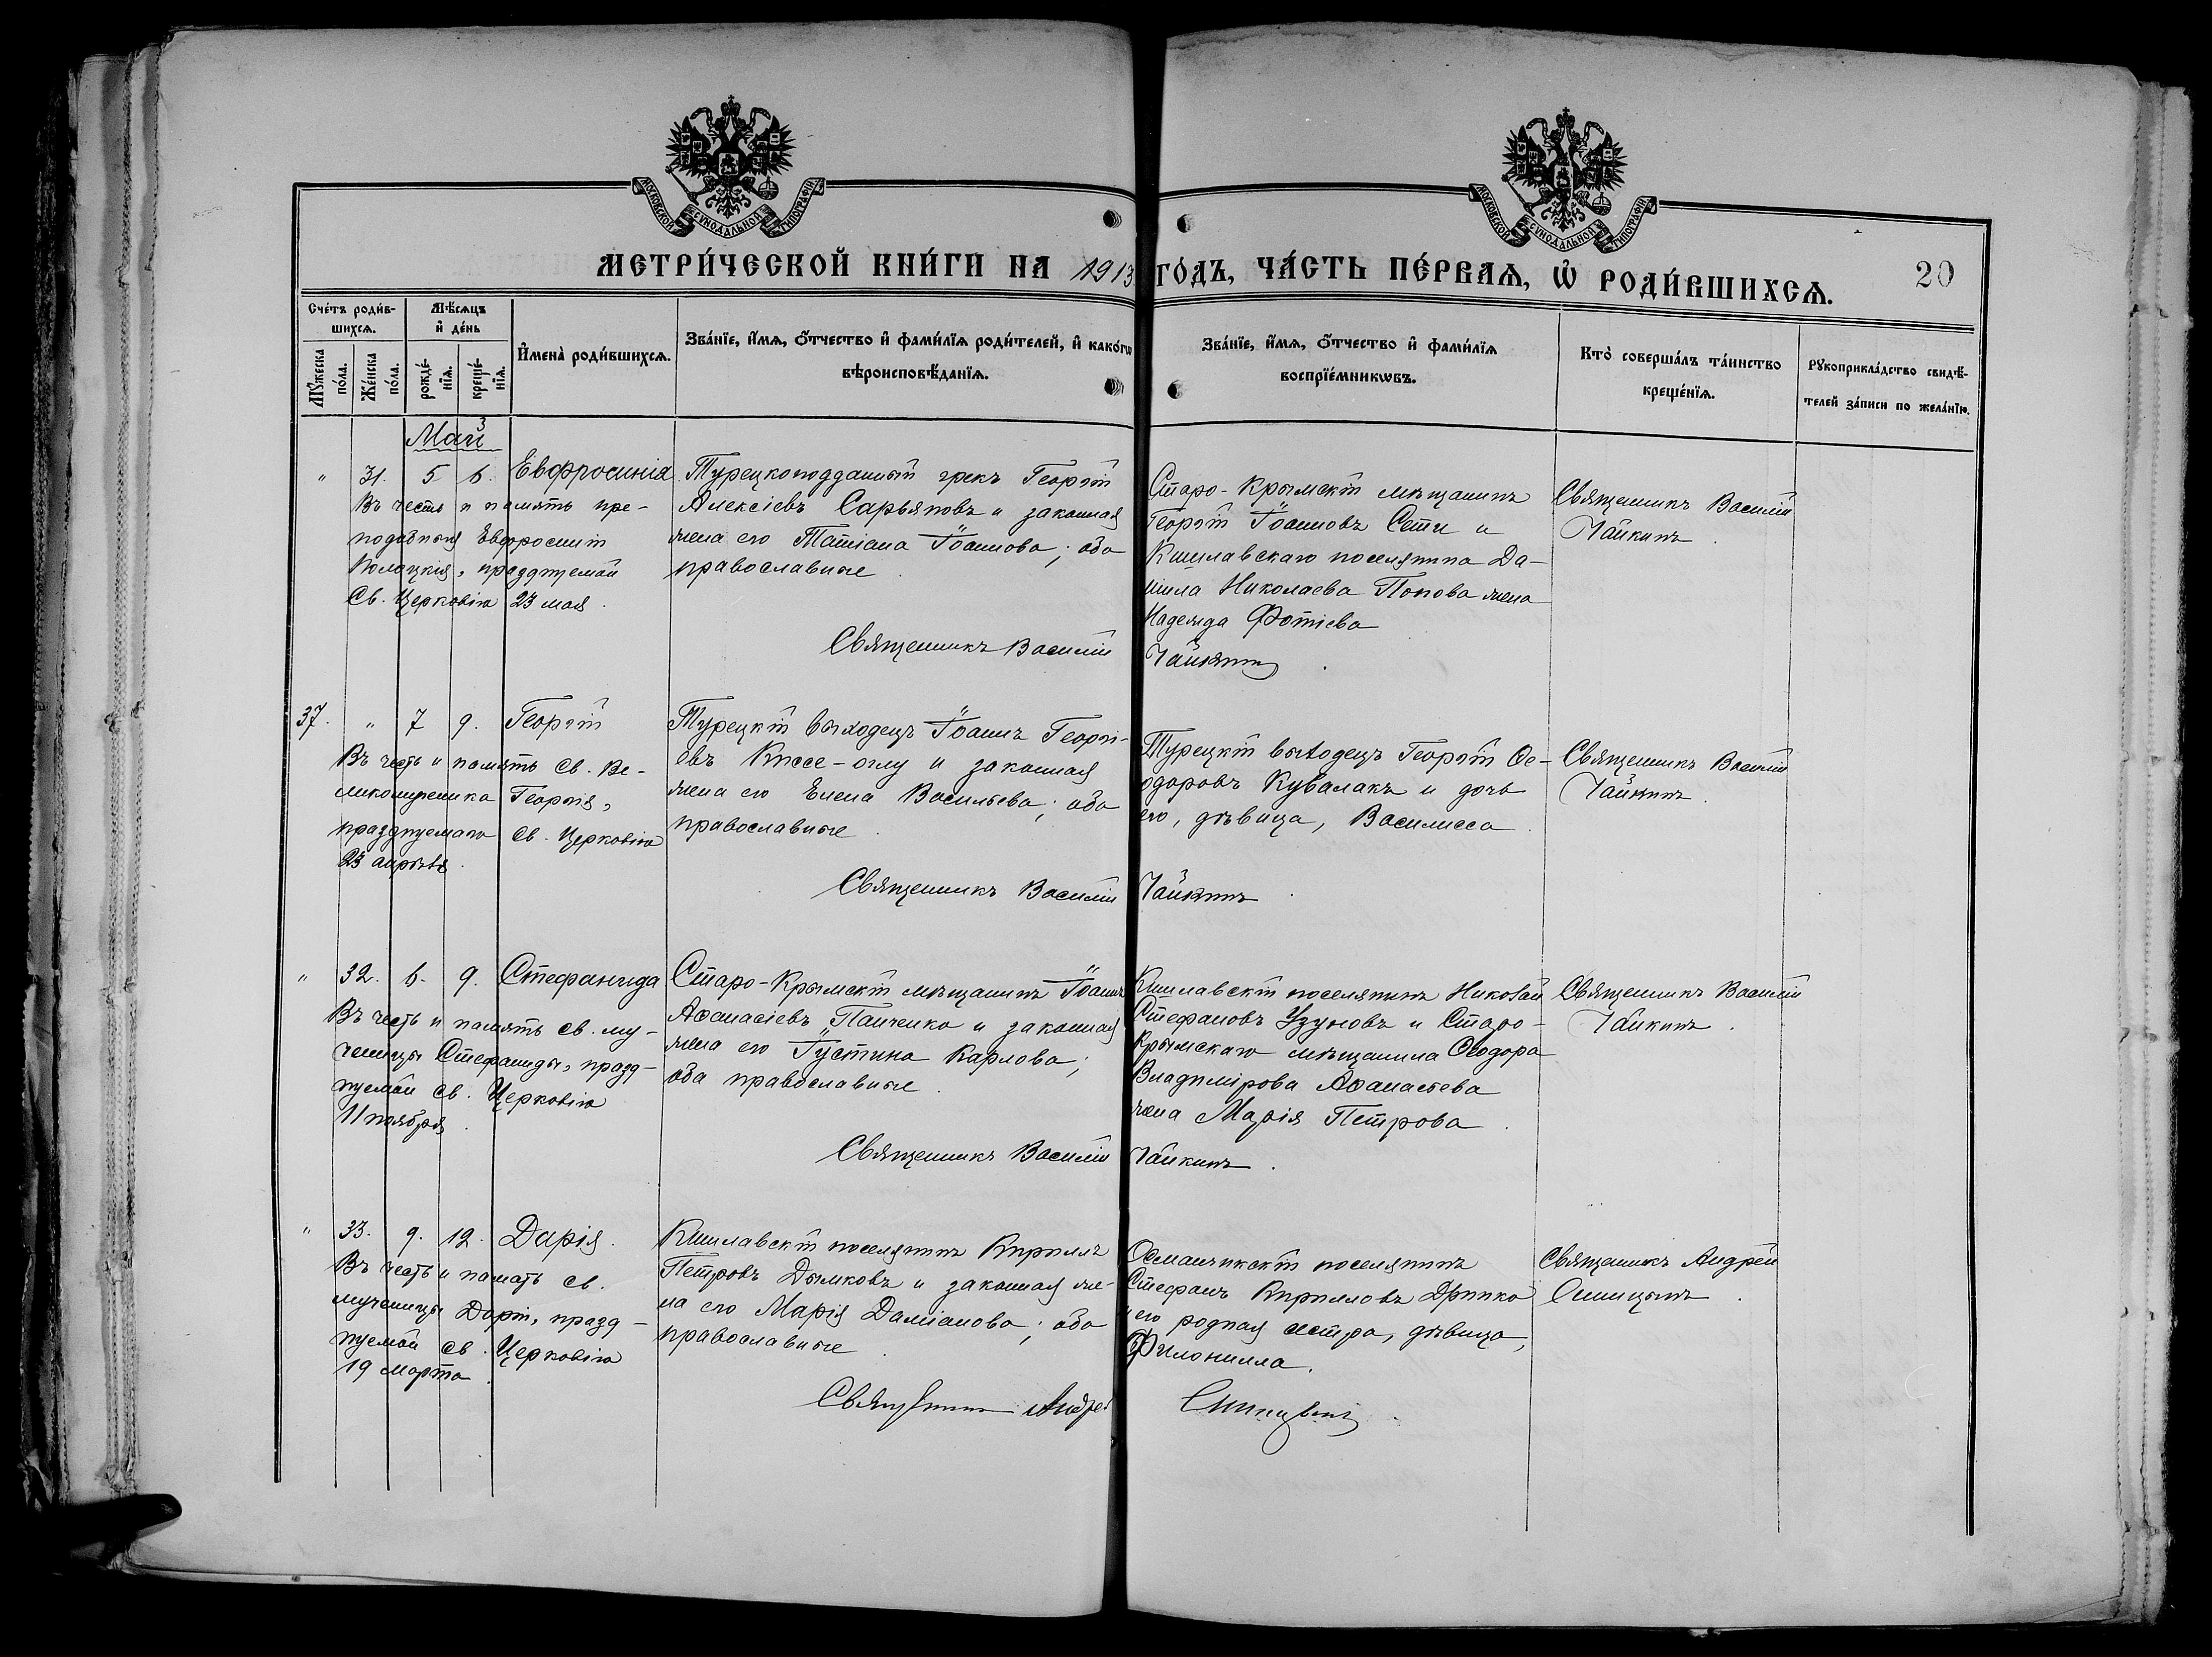 МОСКОВСКОЙ СѴНОДАЛЬНОЙ ТИПОГРАФІИ
МОСКОВСКОЙ СѴНОДАЛЬНОЙ ТИПОГРАФІИ
МЕТРИ́ЧЕСКОЙ КНИ́ГИ НА 1913 ГО́ДЪ, ЧА́СТЬ ПЕ́РВАѦ, Ѡ҆ РОДИ́ВШИХСѦ.
20
Сче́тъ роди́в-
шихсѧ.
Мѣ́сѧцъ
и҆ де́нь
Мꙋ́жеска по́ла.
Же́нска по́ла.
рожде́-
нїѧ.
креще́-
нїѧ.
И҆мена̀ роди́вшихсѧ.
Зва́нїе, и҆́мѧ, ѻ҆́тчество и҆ фами́лїѧ роди́телей, и҆ како́гѡ
вѣроисповѣ́данїѧ.
Зва́нїе, и҆́мѧ, ѻ҆́тчество и҆ фами́лїѧ
воспрїе́мникѡвъ.
Кто̀ соверша́лъ та́инство
креще́нїѧ.
Рꙋкоприкла́дство свидѣ́-
телей за́писи по жела́нїю.
Май
" 31. 5 6. Евфросинія
Въ честь и память пре-
подобныя Евфросиніи
Полоцкія, празднуемой
Св. Церковію 23 мая.
Турецкоподданный грекъ Георгій
Алексіевъ Сарьяновъ и законная
жена его Татіана Іоаннова; оба
православные.
Старо-Крымскій мѣщанинъ
Георгій Іоанновъ Сети и
Кишлавскаго поселянина Да-
ніила Николаева Попова жена
Надежда Фотіева
Священникъ Василій
Чайкинъ.
Священникъ Василій Чайкинъ.
37. " 7 9. Георгій
Въ честь и память св. Ве-
ликомученика Георгія,
празднуемаго св. Церковію
23 апрѣля.
Турецкій выходецъ Іоаннъ Георгі-
евъ Кіссе-оглу и законная
жена его Елена Васильева; оба
православные.
Турецкій выходецъ Георгій Ѳе-
одоровъ Кувалакъ и дочь
его, дѣвица, Василисса.
Священникъ Василій
Чайкинъ.
Священникъ Василій Чайкинъ.
" 32. 6. 9. Стефанида
Въ честь и память св. му-
ченицы Стефаниды, празд-
нуемой св. Церковію
11 ноября.
Старо-Крымскій мѣщанинъ Іоаннъ
Аѳанасіевъ Панченко и законная
жена его Іустина Карлова;
оба православные.
Кишлавскій поселянинъ Николай
Стефановъ Узуновъ и Старо-
крымскаго мѣщанина Ѳеодора
Владимірова Аѳанасьева
жена Марія Петрова.
Священникъ Василій
Чайкинъ.
Священникъ Василій Чайкинъ.
" 33. 9. 12. Дарія.
Въ честь и память св.
мученицы Даріи, празд-
нуемой св. Церковію
19 марта.
Кишлавскій поселянинъ Кириллъ
Петровъ Дымковъ и законная же-
на его Марія Даміанова; оба
православные.
Османчикскій поселянинъ
Стефанъ Кирилловъ Дринко
и его родная сестра, дѣвица,
Филонилла.
Священникъ Андрей
Синицынъ.
Священникъ Андрей Синицынъ.